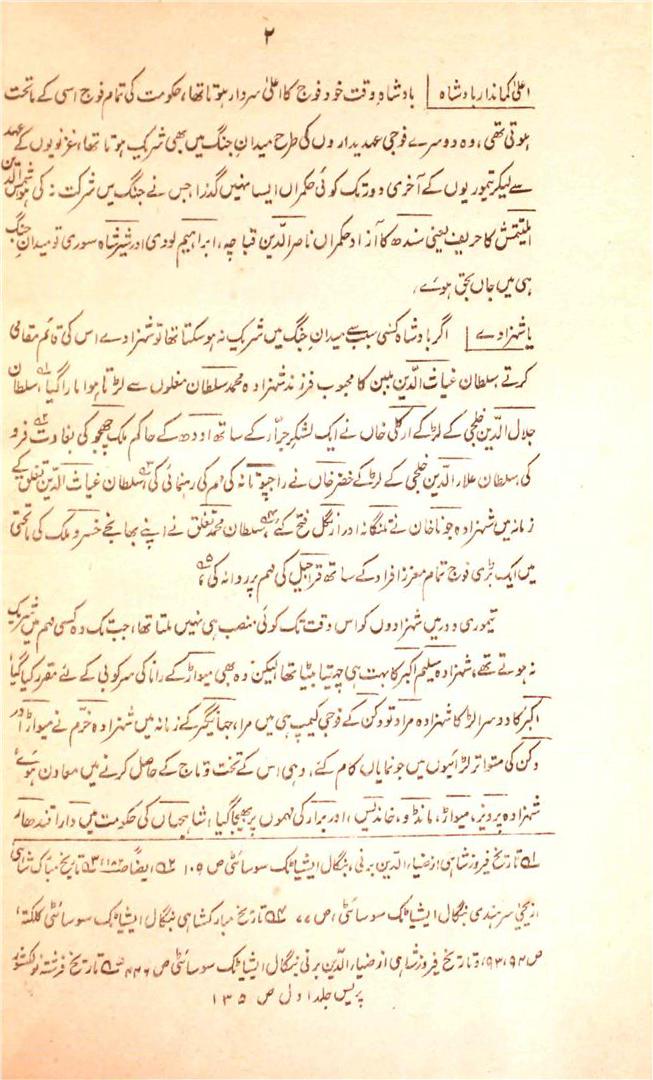 ۲
اعلیٰ کماندار بادشاہ بادشاہ وقت خود فوج کا اعلیٰ سردار ہوتا تھا، حکومت کی تمام فوج اسی کے ماتحت
ہوتی تھی، وہ دوسرے فوجی عہدیداروں کی طرح میدانِ جنگ میں بھی شریک ہوتا تھا، غزنویوں کے عہد
سے لیکر تیموریوں کے آخری دور تک کوئی حکمراں ایسا نہیں گذرا جس نے جنگ میں شرکت نہ کی ہو، شمس الدین
ایلتتمش کا حریف یعنی سندھ کا آزاد حکمراں ناصر الدّین قباچہ، ابراہیم لودی اور شیر شاہ سوری تو میدانِ جنگ
ہی میں جاں بحق ہوئے،
یا شہزادے اگر بادشاہ کسی سبب سے میدانِ جنگ میں شریک نہ ہو سکتا تھا تو شہزادے اس کی قائم مقامی
کرتے، سلطان غیاث الدّین بلبن کا محبوب فرزند شہزادہ محمد سلطان مغلوں سے لڑتا ہوا مارا گیا، سلطان
جلال الدّین خلجی کے لڑکے ارکلی خاں نے ایک لشکرِ جرّار کے ساتھ اودھ کے حاکم ملک چھجو کی بغاوت فرو
کی، سلطان علاء الدّین خلجی کے لڑکے خضر خاں نے راجپوتانہ کی مہم کی رہنمائی کی، سلطان غیاث الدّین تغلق کے
زمانہ میں شہزادہ جونا خان نے تلنگانہ اور ارنگل فتح کئے، سلطان محمد تغلق نے اپنے بھانجے خسرو ملک کی ماتحتی
میں ایک بڑی فوج تمام معزز افراد کے ساتھ قراجیل کی مہم پر روانہ کی،
تیموری دور میں شہزادوں کو اس وقت تک کوئی منصب ہی نہیں ملتا تھا، جب تک وہ کسی مہم میں شریک
نہ ہوتے تھے، شہزادہ سلیم اکبر کا بہت ہی چہیتا بیٹا تھا لیکن وہ بھی میواڑ کے رانا کی سرکوبی کے لئے مقرر کیا گیا
اکبر کا دوسرا لڑکا شہزادہ مراد تو دکن کے فوجی کیمپ ہی میں مرا، جہانگیر کے زمانہ میں شہزادہ خرّم نے میواڑ اور
دکن کی متواتر لڑائیوں میں جو نمایاں کام کئے، وہی اس کے تخت و تاج کے حاصل کرنے میں معاون ہوئے
شہزادہ پرویز، میواڑ، مانڈو، خاندیس، اور برار کی مہموں پر بھیجا گیا، شاہجہاں کی حکومت میں دارا قندھار
۱؎ تاریخ فیروز شاہی از ضیاء الدّین برنی، بنگال ایشیاٹک سوسائٹی ص ۱۰۹ ۲؎ ایضاً ص ۱۸۲ ۳؎ تاریخ مبارک شاہی
از یحییٰ سرہندی بنگال ایشیاٹک سوسائٹی، ص ۷۷ ۴؎ تاریخ مبارکشاہی بنگال ایشیاٹک سوسائٹی کلکتہ،
ص ۹۳، ۹۴، و تاریخ فیروز شاہی از ضیاء الدّین برنی بنگال ایشیاٹک سوسائٹی ص ۴۴۶ ۵؎ تاریخ فرشتہ نولکشور
پریس جلد اول ص ۱۳۵